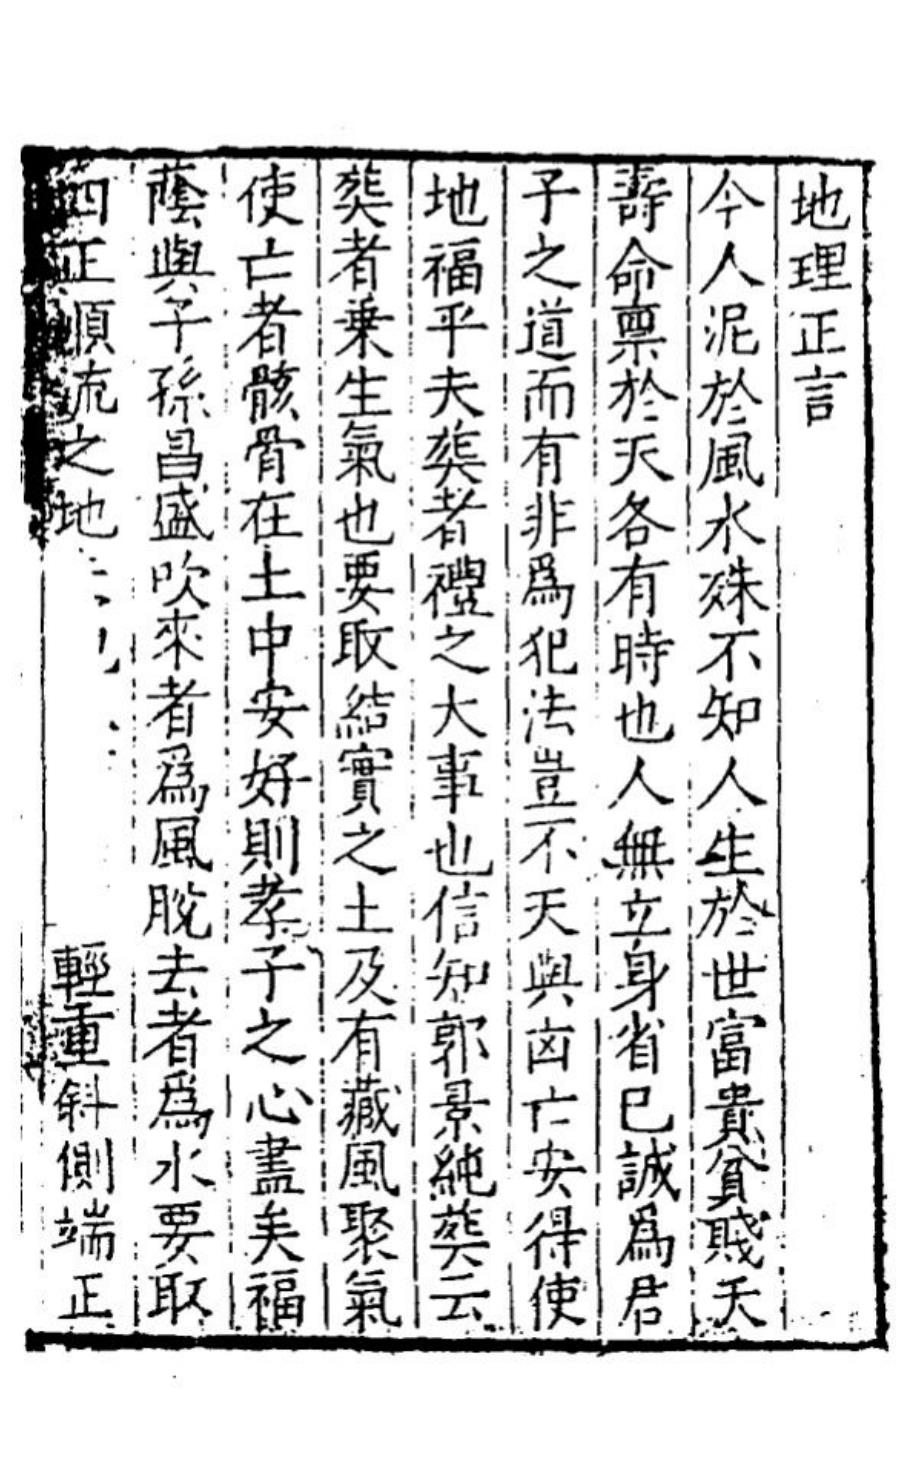 地理正言
今人泥於風水殊不知人生於世富貴貧賤夭
壽命禀於天各有時也人無立身省已誠爲君
子之道而有非爲犯法豈不天與凶亡安得使
地福乎夫葬者禮之大事也信知郭景純葬云
葬者乗生氣也要取結實之土及有藏風聚氣
使亡者骸骨在土中安好則孝子之心盡矣福
蔭與子孫昌盛吹來者爲風脫去者爲水要取
四正順流之地 輕重斜側端正